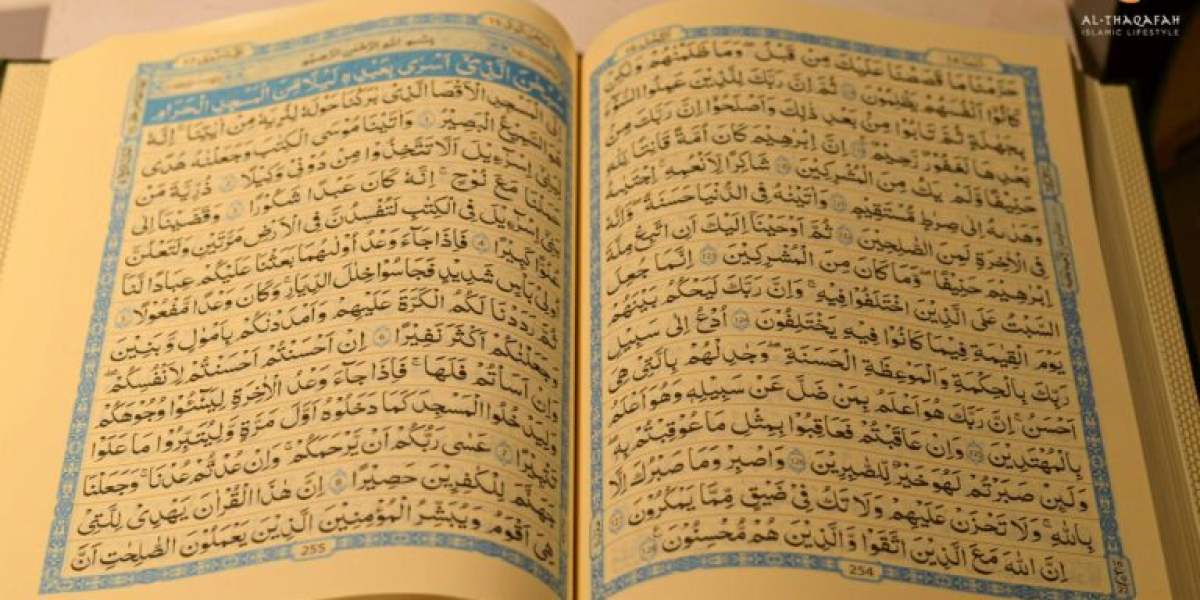 AL-THAQAFAH
ISLAMIC LIFESTYLE
حَرَّمْنَا مَا قَصَصْنَا عَلَيْكَ مِنْ قَبْلُ ۖ وَمَا ظَلَمْنٰهُمْ وَلٰكِنْ
كَانُوْٓا اَنْفُسَهُمْ يَظْلِمُوْنَ ۝ ثُمَّ اِنَّ رَبَّكَ لِلَّذِيْنَ عَمِلُوا السُّوْۤءَ
بِجَهٰلَةٍ ثُمَّ تَابُوْا مِنْۢ بَعْدِ ذٰلِكَ وَاَصْلَحُوْٓا اِنَّ رَبَّكَ مِنْ
بَعْدِهَا لَغَفُوْرٌ رَّحِيْمٌ ۝ اِنَّ اِبْرٰهِيْمَ كَانَ اُمَّةً قَانِتًا لِّلّٰهِ
حَنِيْفًا وَلَمْ يَكُ مِنَ الْمُشْرِكِيْنَ ۝ شَاكِرًا لِّاَنْعُمِهٖ اِجْتَبٰىهُ
وَهَدٰىهُ اِلٰى صِرٰطٍ مُّسْتَقِيْمٍ ۝ وَاٰتَيْنٰهُ فِى الدُّنْيَا حَسَنَةً ۖ وَاِنَّهٗ
فِى الْاٰخِرَةِ لَمِنَ الصّٰلِحِيْنَ ۝ ثُمَّ اَوْحَيْنَآ اِلَيْكَ اَنِ اتَّبِعْ مِلَّةَ
اِبْرٰهِيْمَ حَنِيْفًا ۖ وَمَا كَانَ مِنَ الْمُشْرِكِيْنَ ۝ اِنَّمَا جُعِلَ
السَّبْتُ عَلَى الَّذِيْنَ اخْتَلَفُوْا فِيْهِ ۚ وَاِنَّ رَبَّكَ لَيَحْكُمُ بَيْنَهُمْ
يَوْمَ الْقِيٰمَةِ فِيْمَا كَانُوْا فِيْهِ يَخْتَلِفُوْنَ ۝ اُدْعُ اِلٰى سَبِيْلِ
رَبِّكَ بِالْحِكْمَةِ وَالْمَوْعِظَةِ الْحَسَنَةِ ۖ وَجٰدِلْهُمْ بِالَّتِيْ هِيَ
اَحْسَنُ ۚ اِنَّ رَبَّكَ هُوَ اَعْلَمُ بِمَنْ ضَلَّ عَنْ سَبِيْلِهٖ وَهُوَ اَعْلَمُ
بِالْمُهْتَدِيْنَ ۝ وَاِنْ عَاقَبْتُمْ فَعَاقِبُوْا بِمِثْلِ مَا عُوْقِبْتُمْ بِهٖ ۖ
وَلَىِٕنْ صَبَرْتُمْ لَهُوَ خَيْرٌ لِّلصّٰبِرِيْنَ ۝ وَاصْبِرْ وَمَا صَبْرُكَ اِلَّا
بِاللّٰهِ ۚ وَلَا تَحْزَنْ عَلَيْهِمْ وَلَا تَكُ فِيْ ضَيْقٍ مِّمَّا يَمْكُرُوْنَ ۝
اِنَّ اللّٰهَ مَعَ الَّذِيْنَ اتَّقَوْا وَّالَّذِيْنَ هُمْ مُّحْسِنُوْنَ ۝
254
بِسْمِ اللّٰهِ الرَّحْمٰنِ الرَّحِيْمِ
سُبْحٰنَ الَّذِيْٓ اَسْرٰى بِعَبْدِهٖ لَيْلًا مِّنَ الْمَسْجِدِ الْحَرَامِ
اِلَى الْمَسْجِدِ الْاَقْصَا الَّذِيْ بٰرَكْنَا حَوْلَهٗ لِنُرِيَهٗ مِنْ اٰيٰتِنَا ۗ اِنَّهٗ
هُوَ السَّمِيْعُ الْبَصِيْرُ ۝ وَاٰتَيْنَا مُوْسَى الْكِتٰبَ وَجَعَلْنٰهُ هُدًى
لِّبَنِيْٓ اِسْرَاۤءِيْلَ اَلَّا تَتَّخِذُوْا مِنْ دُوْنِيْ وَكِيْلًا ۝ ذُرِّيَّةَ مَنْ
حَمَلْنَا مَعَ نُوْحٍ ۗ اِنَّهٗ كَانَ عَبْدًا شَكُوْرًا ۝ وَقَضَيْنَآ اِلٰى
بَنِيْٓ اِسْرَاۤءِيْلَ فِى الْكِتٰبِ لَتُفْسِدُنَّ فِى الْاَرْضِ مَرَّتَيْنِ وَلَتَعْلُنَّ
عُلُوًّا كَبِيْرًا ۝ فَاِذَا جَاۤءَ وَعْدُ اُوْلٰىهُمَا بَعَثْنَا عَلَيْكُمْ عِبَادًا لَّنَآ
اُولِيْ بَأْسٍ شَدِيْدٍ فَجَاسُوْا خِلٰلَ الدِّيَارِ ۗ وَكَانَ وَعْدًا مَّفْعُوْلًا ۝
ثُمَّ رَدَدْنَا لَكُمُ الْكَرَّةَ عَلَيْهِمْ وَاَمْدَدْنٰكُمْ بِاَمْوٰلٍ وَّبَنِيْنَ
وَجَعَلْنٰكُمْ اَكْثَرَ نَفِيْرًا ۝ اِنْ اَحْسَنْتُمْ اَحْسَنْتُمْ لِاَنْفُسِكُمْ ۖ
وَاِنْ اَسَأْتُمْ فَلَهَا ۚ فَاِذَا جَاۤءَ وَعْدُ الْاٰخِرَةِ لِيَسٗۤـُٔوْا وُجُوْهَكُمْ
وَلِيَدْخُلُوا الْمَسْجِدَ كَمَا دَخَلُوْهُ اَوَّلَ مَرَّةٍ وَّلِيُتَبِّرُوْا مَا عَلَوْا
تَتْبِيْرًا ۝ عَسٰى رَبُّكُمْ اَنْ يَّرْحَمَكُمْ ۚ وَاِنْ عُدْتُّمْ عُدْنَا ۘ وَجَعَلْنَا
جَهَنَّمَ لِلْكٰفِرِيْنَ حَصِيْرًا ۝ اِنَّ هٰذَا الْقُرْاٰنَ يَهْدِيْ لِلَّتِيْ
هِيَ اَقْوَمُ وَيُبَشِّرُ الْمُؤْمِنِيْنَ الَّذِيْنَ يَعْمَلُوْنَ الصّٰلِحٰتِ اَنَّ
255